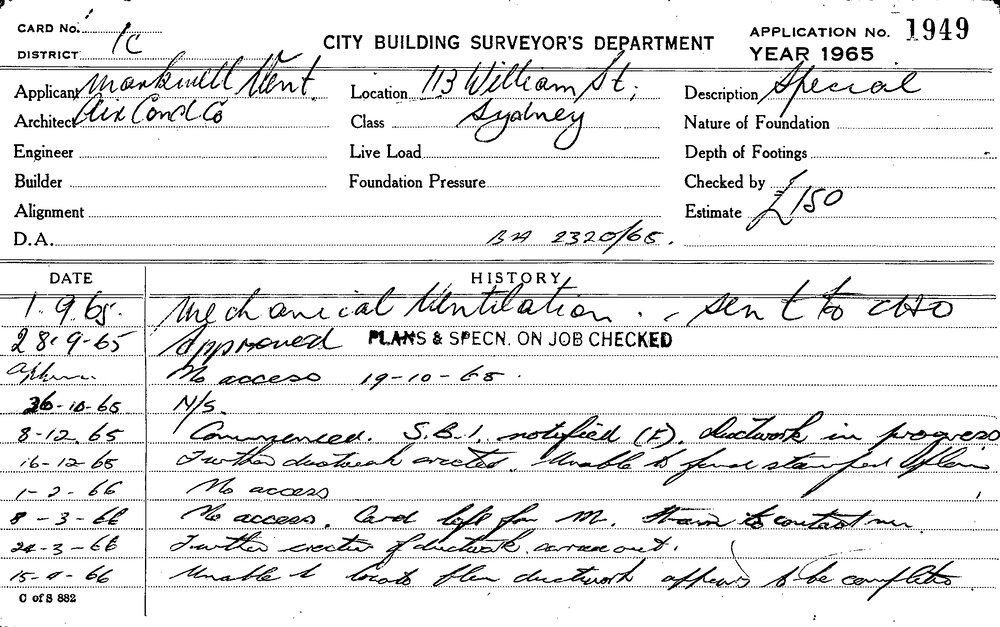 CARD No. 1C
DISTRICT
CITY BUILDING SURVEYOR'S DEPARTMENT
APPLICATION No. 1949
YEAR 1965
Applicant Markwell Vent. Location 113 William St; Description Special
Architect Air Cond Co Class Sydney Nature of Foundation
Engineer Live Load Depth of Footings
Builder Foundation Pressure Checked by
Alignment Estimate £150
D.A. BA 2320/65.
DATE HISTORY
1.9.65. Mechanical Ventilation. sent to CHO
28.9-65 Approved PLANS & SPECN. ON JOB CHECKED
No access 19-10-65.
26-10-65 N/S.
8-12.65 Commenced. S.B.I. notified (F). ductwork in progress
16-12-65 Further ductwork erected. Unable to find stamped plan
1-2-66 No access
8-3-66 No access. Card left for Mr. to contact me
24-3-66 Further erection of ductwork carried out.
66 Unable to locate plan ductwork appears to be complete
C of S 882